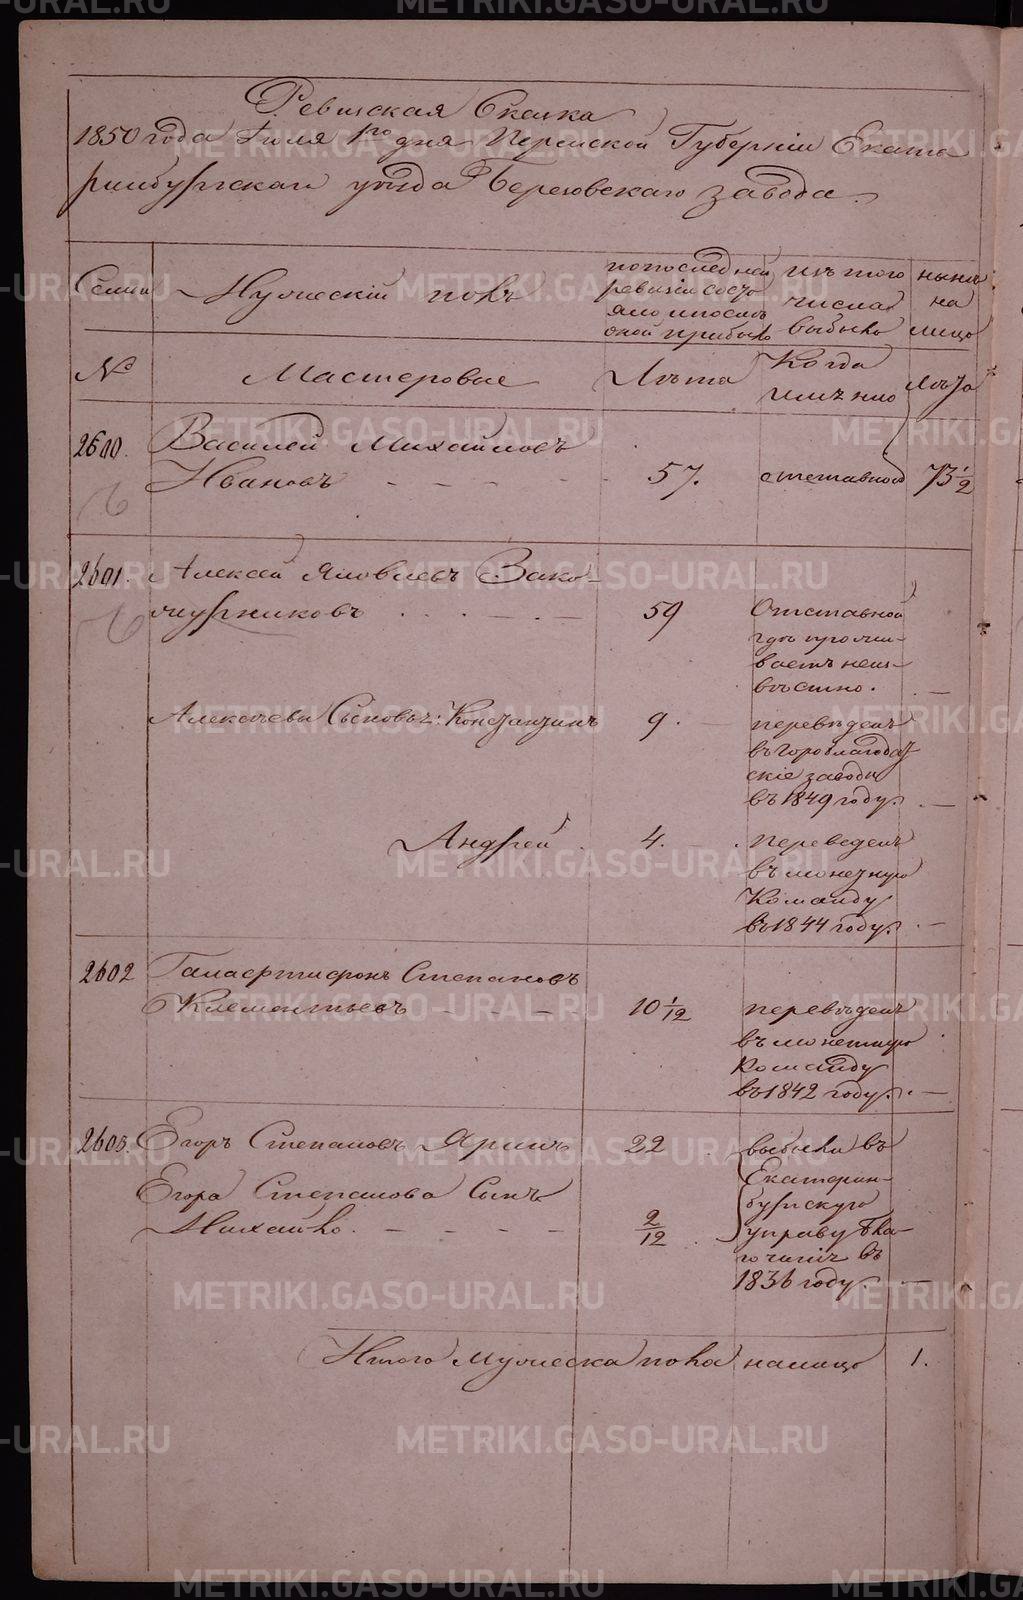 Ревизская Сказка
1850 года Іюля 1го дня Пермской Губерніи Екате
ринбургскаго уѣзда Березовскаго завода.
Семьи Мужескій полъ
по последней
ревизіи состо
яло и после
оной прибыло
изъ того
числа
выбыло
нынѣ
на
лицо
№ Мастеровые Лѣта Когда
именно Лѣта
2600. Василей Михайловъ
Ивановъ 57. отставной 73 1/2
2601. Алексей Яковлевъ Зако-
журниковъ 59 Отставной
где прожи-
ваетъ неиз-
вѣстно.
Алексеевы Сыновья: Константинъ 9. переведенъ
въ Гороблагодат
скіе заводы
въ 1849 году.
Андрей 4. переведенъ
въ монетную
Команду
въ 1844 году.
2602 Степановъ
Клементьевъ 10 1/12 переведенъ
въ монетную
Команду
въ 1842 году.
2603. Егоръ Степановъ Яринъ 22 выбыли въ
Екатерин-
бургскую
управу Бла-
гочинія въ
1836 году.
Егора Степанова Сынъ
Михайло. 2/12
Итого мужеска пола на лицо 1.
METRIKI.GASO-URAL.RU